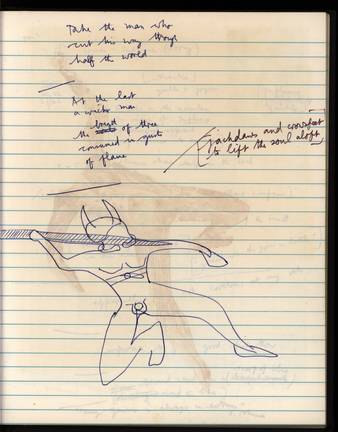 Take the man who
cut his way through
half the world
At the last
a white man
the of three
consumed in gusts
of flame
jackdaws and crows feet
to lift the soul aloft